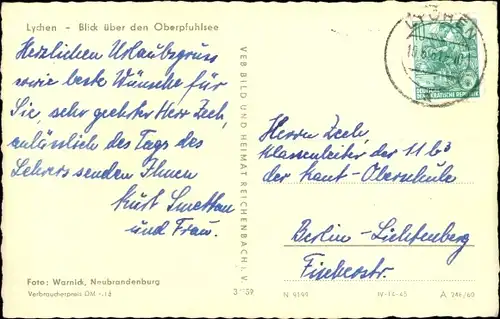 Lychen - Blick über den Oberpfuhlsee
Herzlichen Urlaubsgruss
sowie beste Wünsche für
Sie, sehr geehrter Herr Zech,
anlässlich des Tags des
Lehrers senden Ihnen
Kurt
und Frau.
Foto: Warnick, Neubrandenburg
Verbraucherpreis DM
VEB BILD UND HEIMAT REICHENBACH i. V.
LYCHEN
DEMOKRATISCHE REPUBLIK
Herrn Zech,
Klassenleiter der 11 b³
der Kant-Oberschule
Berlin-Lichtenberg
Fischerstr.
N 9199
IV-14-45
A 246/60